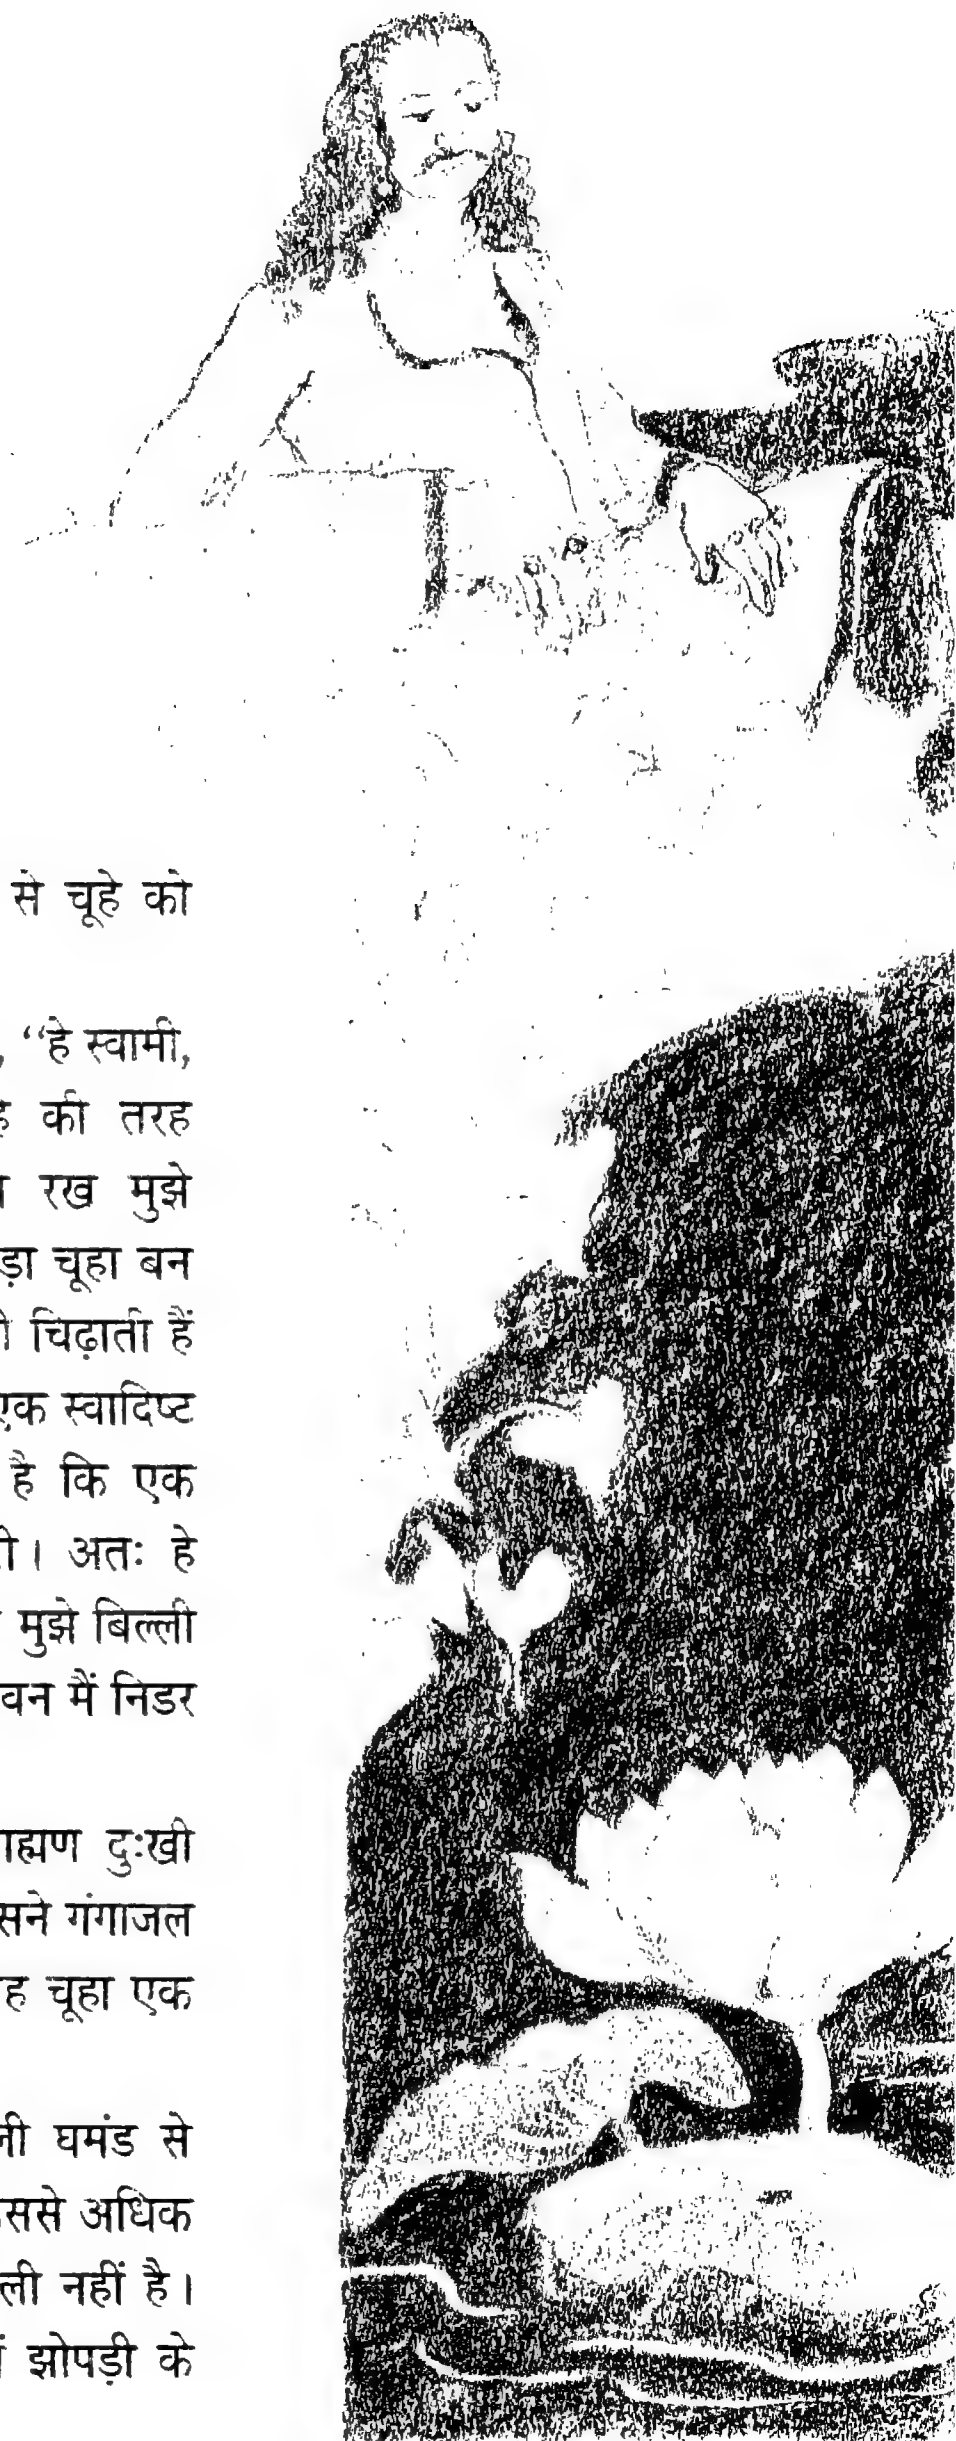 से चूहे को
“हे स्वामी,
की तरह
रख मुझे
चूहा बन
चिढ़ाती हैं
एक स्वादिष्ट
है कि एक
अतः हे
मुझे बिल्ली
मैं निडर
दुःखी
गंगाजल
चूहा एक
घमंड से
अधिक
नहीं है।
झोपड़ी के